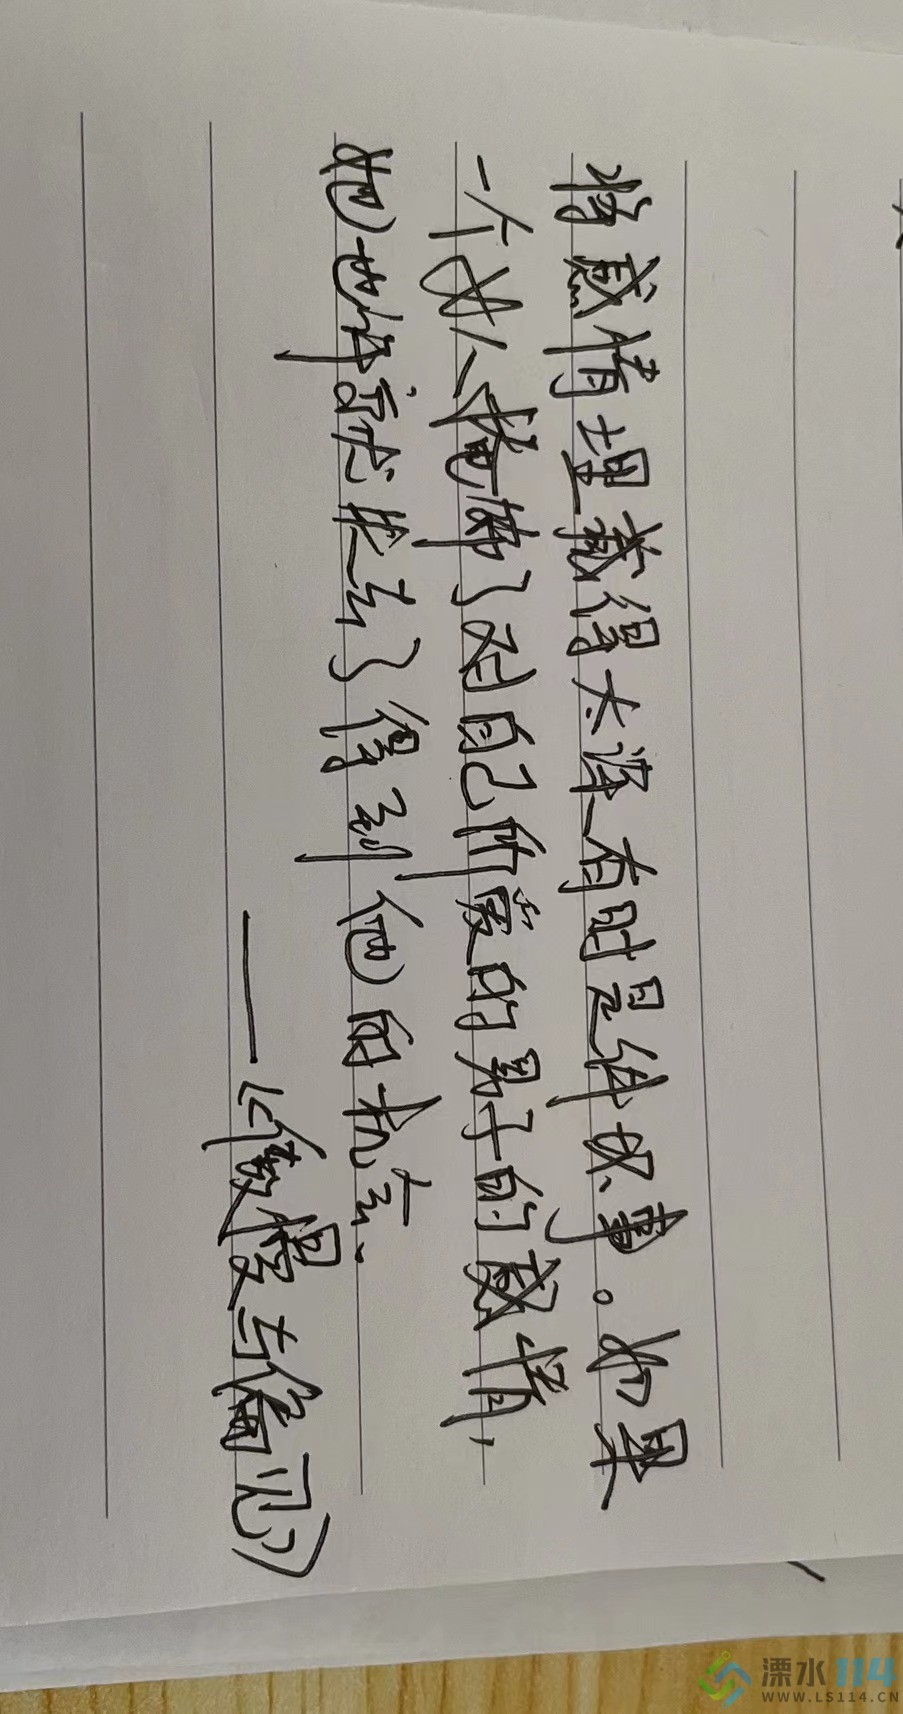 将感情埋藏得太深有时是件坏事。如果
一个女人掩饰了对自己所爱的男子的感情，
她也许就失去了得到他的机会、
——《傲慢与偏见》
溧水114
WWW.LS114.CN